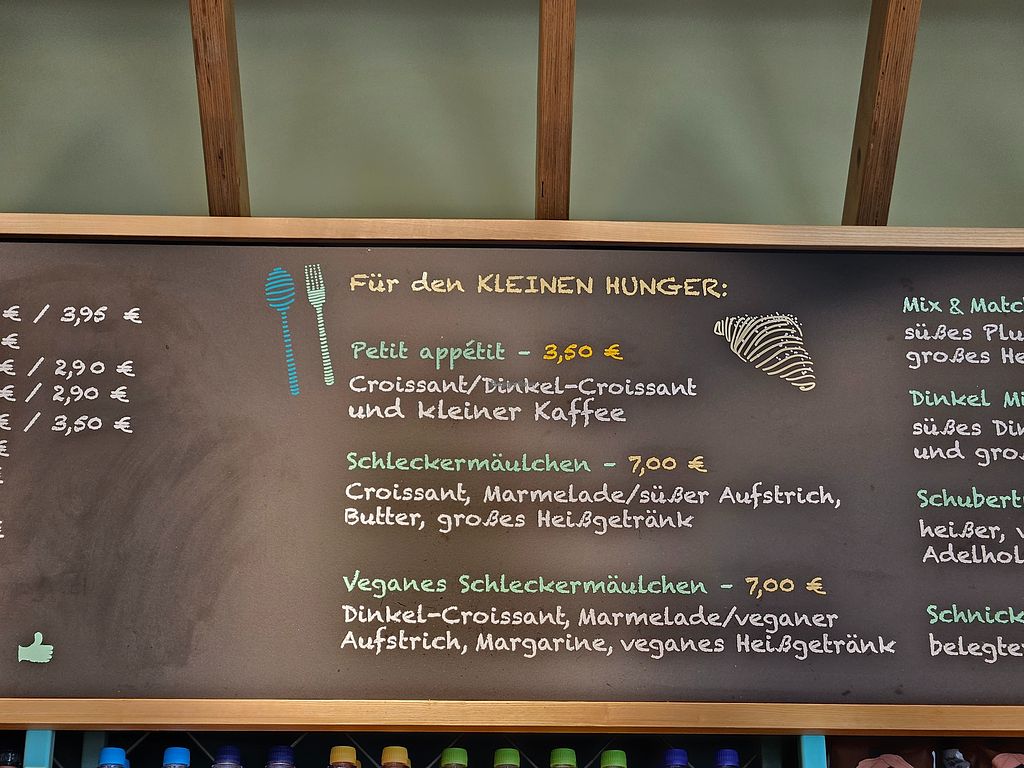 € / 3,95 €
€
€ / 2,90 €
€ / 2,90 €
€ / 3,50 €
€
€
€
Für den KLEINEN HUNGER:
Petit appétit - 3,50 €
Croissant/Dinkel-Croissant
und kleiner Kaffee
Schleckermäulchen - 7,00 €
Croissant, Marmelade/süßer Aufstrich,
Butter, großes Heißgetränk
Veganes Schleckermäulchen - 7,00 €
Dinkel-Croissant, Marmelade/veganer
Aufstrich, Margarine, veganes Heißgetränk
Mix & Matc
süßes Plu
großes He
Dinkel Mi
süßes Din
und gro
Schubert
heißer, v
Adelhol
Schnick
belegte